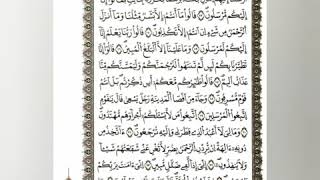 إِلَيْكُم مُّرْسَلُونَ ١٤ قَالُوا۟ مَآ أَنتُمْ إِلَّا بَشَرٌ مِّثْلُنَا وَمَآ أَنزَلَ
ٱلرَّحْمَـٰنُ مِن شَىْءٍ إِنْ أَنتُمْ إِلَّا تَكْذِبُونَ ١٥ قَالُوا۟ رَبُّنَا يَعْلَمُ إِنَّآ
إِلَيْكُمْ لَمُرْسَلُونَ ١٦ وَمَا عَلَيْنَآ إِلَّا ٱلْبَلَـٰغُ ٱلْمُبِينُ ١٧ قَالُوٓا۟
إِنَّا تَطَيَّرْنَا بِكُمْ لَئِن لَّمْ تَنتَهُوا۟ لَنَرْجُمَنَّكُمْ وَلَيَمَسَّنَّكُم مِّنَّا
عَذَابٌ أَلِيمٌ ١٨ قَالُوا۟ طَـٰٓئِرُكُم مَّعَكُمْ أَئِن ذُكِّرْتُم بَلْ أَنتُمْ
قَوْمٌ مُّسْرِفُونَ ١٩ وَجَآءَ مِنْ أَقْصَا ٱلْمَدِينَةِ رَجُلٌ يَسْعَىٰ قَالَ يَـٰقَوْمِ
ٱتَّبِعُوا۟ ٱلْمُرْسَلِينَ ٢٠ ٱتَّبِعُوا۟ مَن لَّا يَسْـَٔلُكُمْ أَجْرًا وَهُم مُّهْتَدُونَ
٢١ وَمَا لِىَ لَآ أَعْبُدُ ٱلَّذِى فَطَرَنِى وَإِلَيْهِ تُرْجَعُونَ ٢٢ ءَأَتَّخِذُ مِن
دُونِهِۦٓ ءَالِهَةً إِن يُرِدْنِ ٱلرَّحْمَـٰنُ بِضُرٍّ لَّا تُغْنِ عَنِّى شَفَـٰعَتُهُمْ شَيْـًٔا
وَلَا يُنقِذُونِ ٢٣ إِنِّىٓ إِذًا لَّفِى ضَلَـٰلٍ مُّبِينٍ ٢٤ إِنِّىٓ ءَامَنتُ بِرَبِّكُمْ